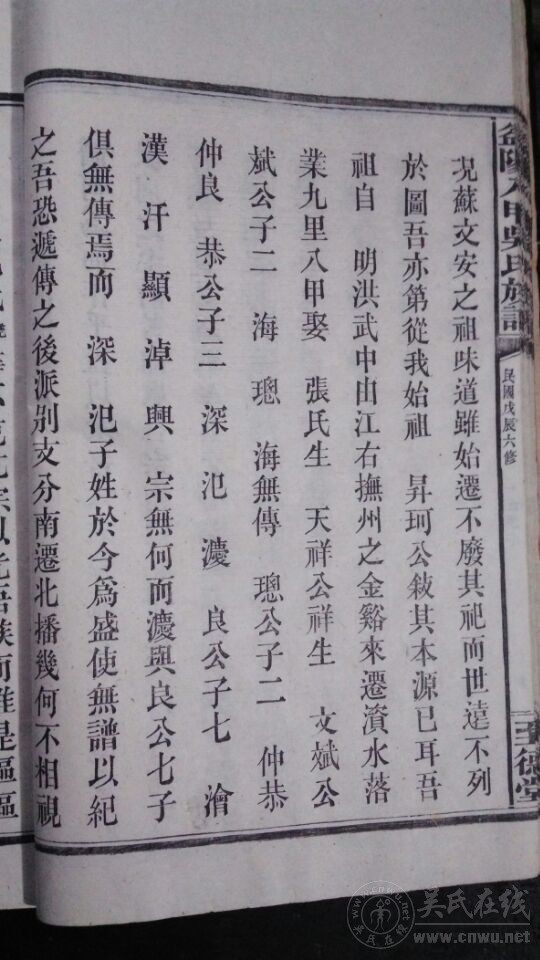 益陽八甲吳氏族譜
民國戊辰六修
至德堂
况蘇文安之祖味道雖始遷不廢其祀而世遠不列
於圖吾亦第從我始祖 昇珂公敍其本源已耳吾
祖自 明洪武中由江右撫州之金谿來遷資水落
業九里八甲娶 張氏生 天祥公祥生 文斌公
斌公子二 海 璁 海無傳 璁公子二 仲恭
仲良 恭公子三 深 汜 濃 良公子七 澮
漢 汗 顯 淖 興 宗無何而濃與良公七子
俱無傳焉而 深 汜子姓於今爲盛使無譜以紀
之吾恐遞傳之後派别支分南遷北播幾何不相視
吴氏在线
www.cnwu.net